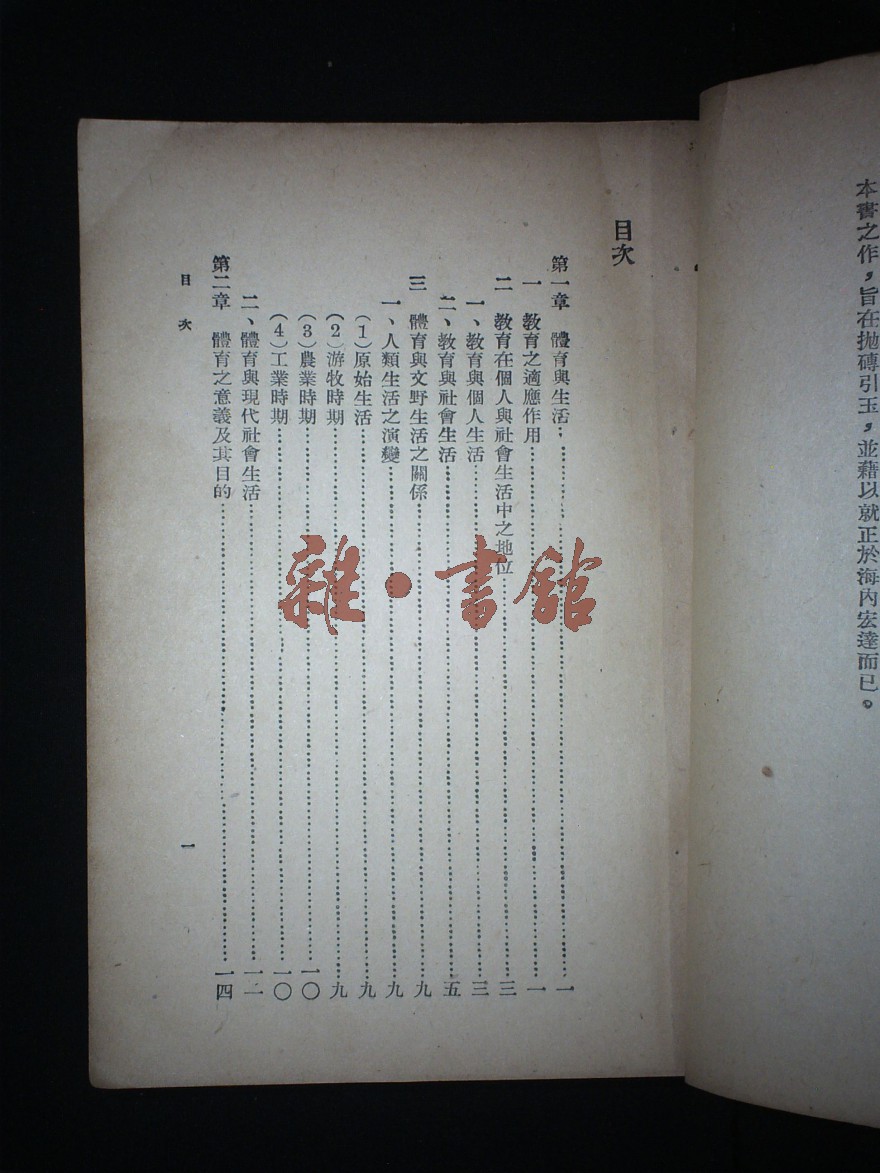 本書之作，旨在拋磚引玉，並藉以就正於海內宏達而已。
目次
第一章　體育與生活…………一
一　教育之適應作用…………一
二　教育在個人與社會生活中之地位…………三
一、教育與個人生活…………三
二、教育與社會生活…………五
三　體育與文野生活之關係…………九
一、人類生活之演變…………九
（1）原始生活…………九
（2）游牧時期…………九
（3）農業時期…………一〇
（4）工業時期…………一〇
二、體育與現代社會生活…………一二
第二章　體育之意義及其目的…………一四
目次　一
雜·書館